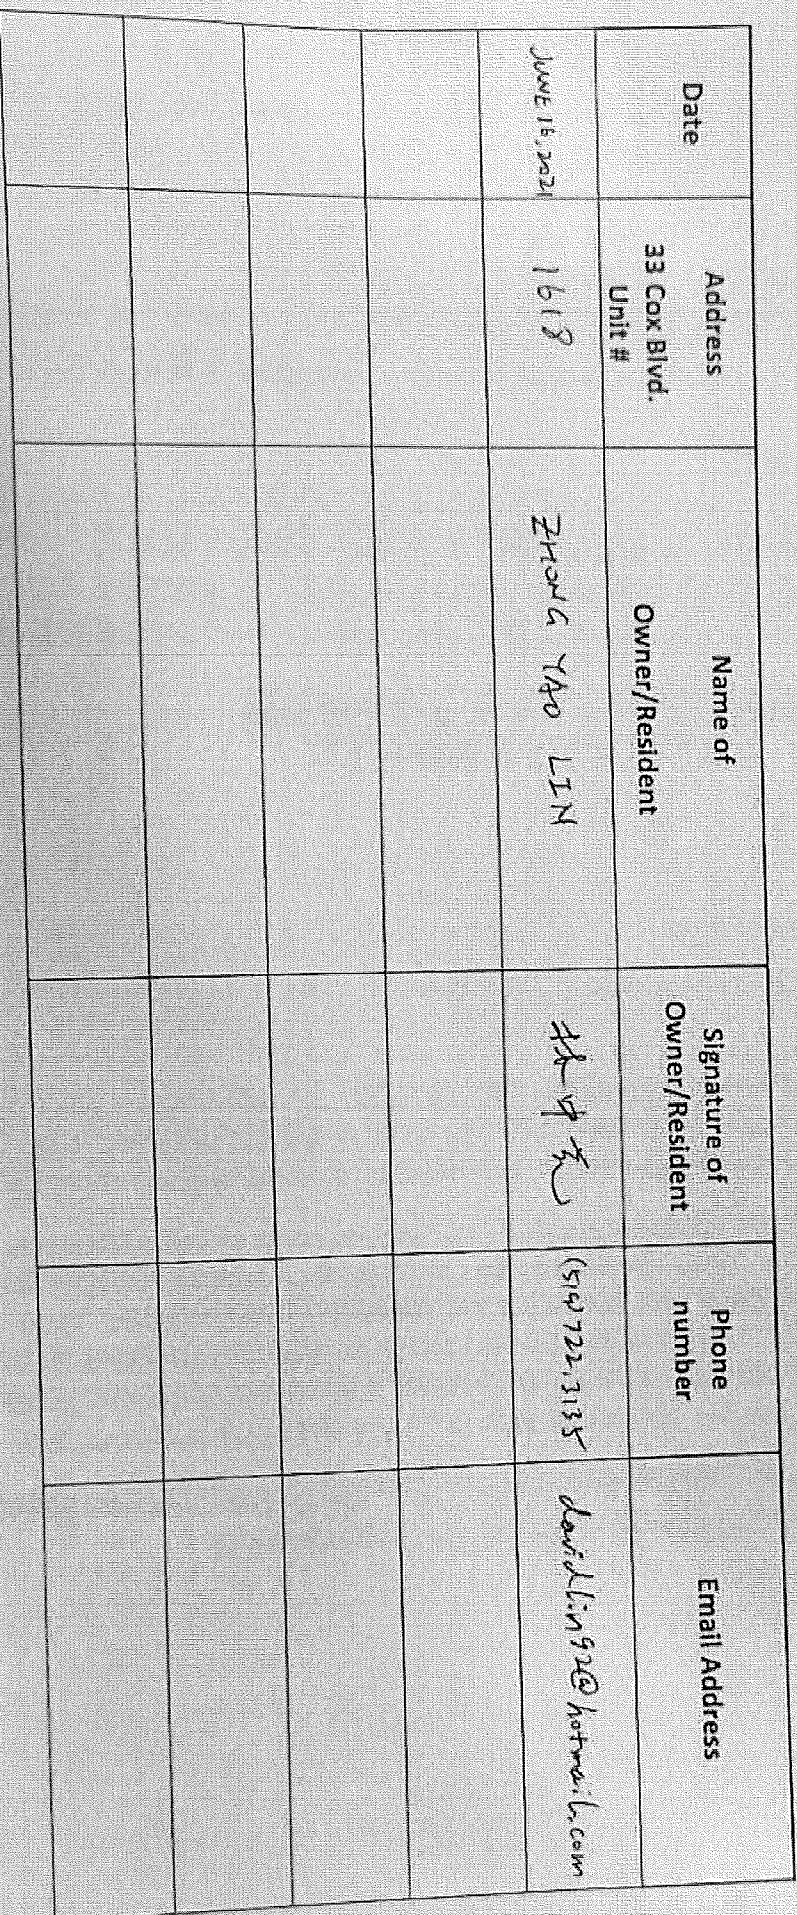 Date
Address
33 Cox Blvd.
Unit #
Name of
Owner/Resident
Signature of
Owner/Resident
Phone
number
Email Address
JUNE 16, 2021
1618
ZHONG YAO LIN
林中尧
(519) 722.3135
davidlin92@hotmail.com